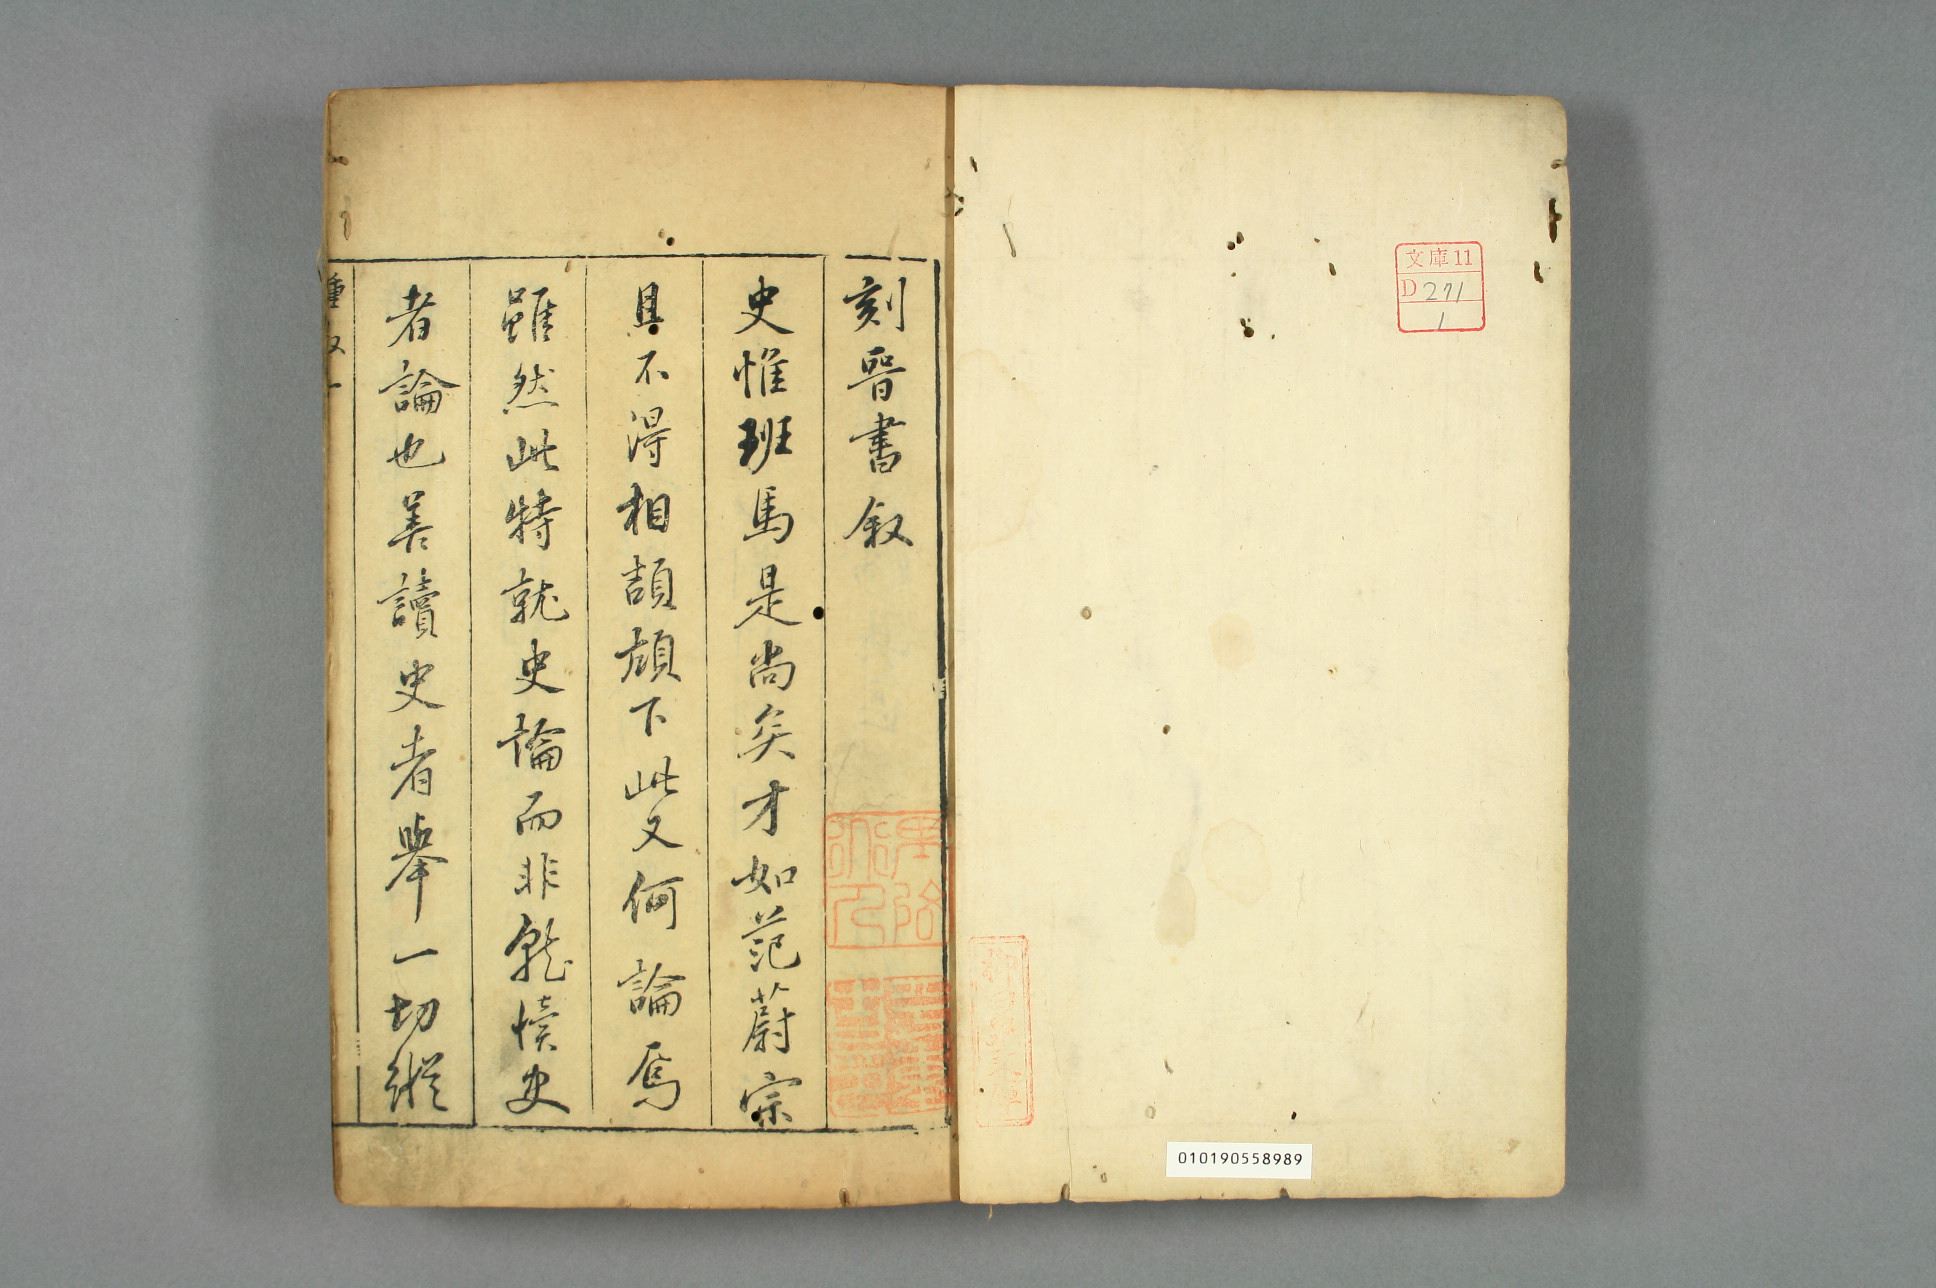 文庫11
D 271
1
010190558989
刻晉書叙
史惟班馬是尚矣才如范蔚宗
且不得相頡頏下此又何論焉
雖然此特就史論而非就讀史
者論也善讀史者舉一切縱